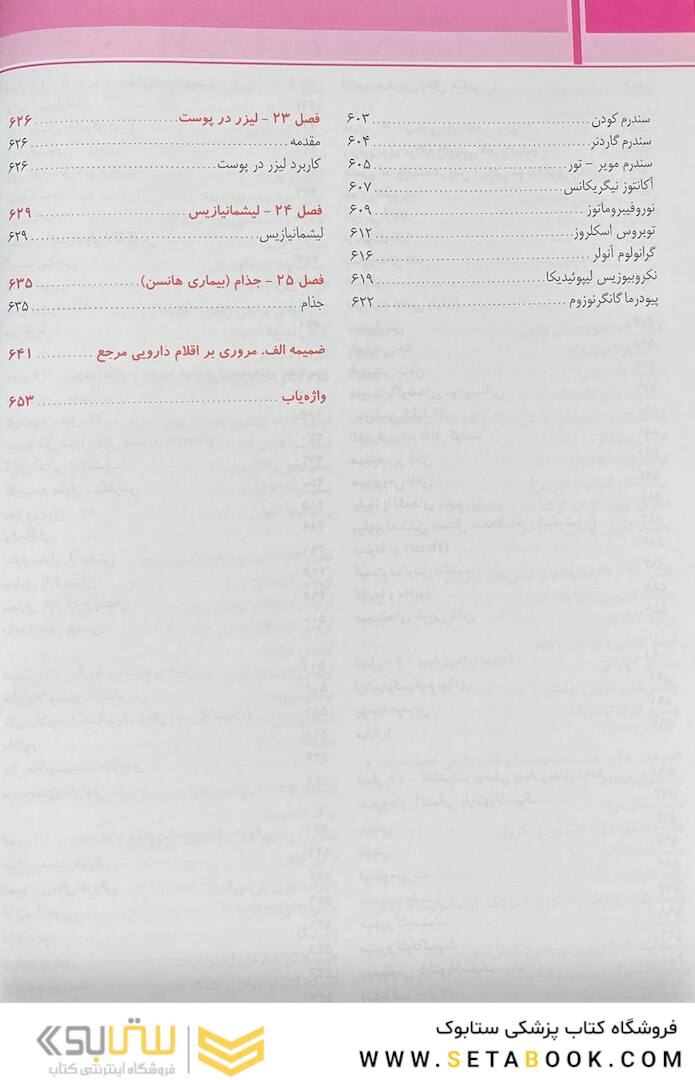 سندرم کودن ........ ۶۰۳
سندرم گاردنر ........ ۶۰۴
سندرم مویر – تور ........ ۶۰۵
آکانتوز نیگریکانس ........ ۶۰۷
نوروفیبروماتوز ........ ۶۰۹
توبروس اسکلروز ........ ۶۱۲
گرانولوم آنولر ........ ۶۱۶
نکروبیوزیس لیپوئیدیکا ........ ۶۱۹
پیودرما گانگرنوزوم ........ ۶۲۲
فصل ۲۳ – لیزر در پوست ........ ۶۲۶
مقدمه ........ ۶۲۶
کاربرد لیزر در پوست ........ ۶۲۶
فصل ۲۴ – لیشمانیازیس ........ ۶۲۹
لیشمانیازیس ........ ۶۲۹
فصل ۲۵ – جذام (بیماری هانسن) ........ ۶۳۵
جذام ........ ۶۳۵
ضمیمه الف. مروری بر اقلام دارویی مرجع ........ ۶۴۱
واژه‌یاب ........ ۶۵۳
فروشگاه کتاب پزشکی ستابوک
WWW.SETABOOK.COM
ستابوک
فروشگاه اینترنتی کتاب